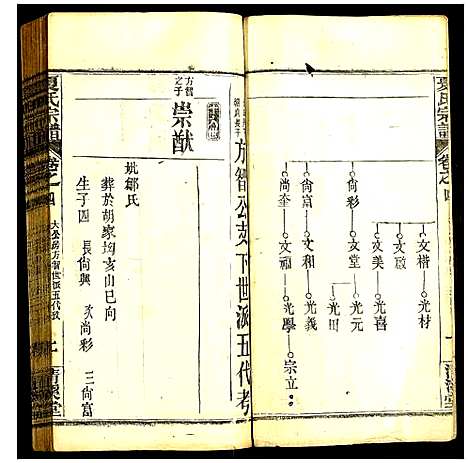 夏氏宗譜
卷之四
文楷 光材
文啟
文美 光喜
尚彩 文堂 光元
光田
尚富 文和 光義
尚奎 文福 光學 宗立
方智公支下世派五代考
方智
之子
崇猷
妣鄒氏
葬於胡家坳亥山巳向
生子四 長尚興 次尚彩 三尚富
夏氏宗譜
卷之四
大公房方智世派五代考